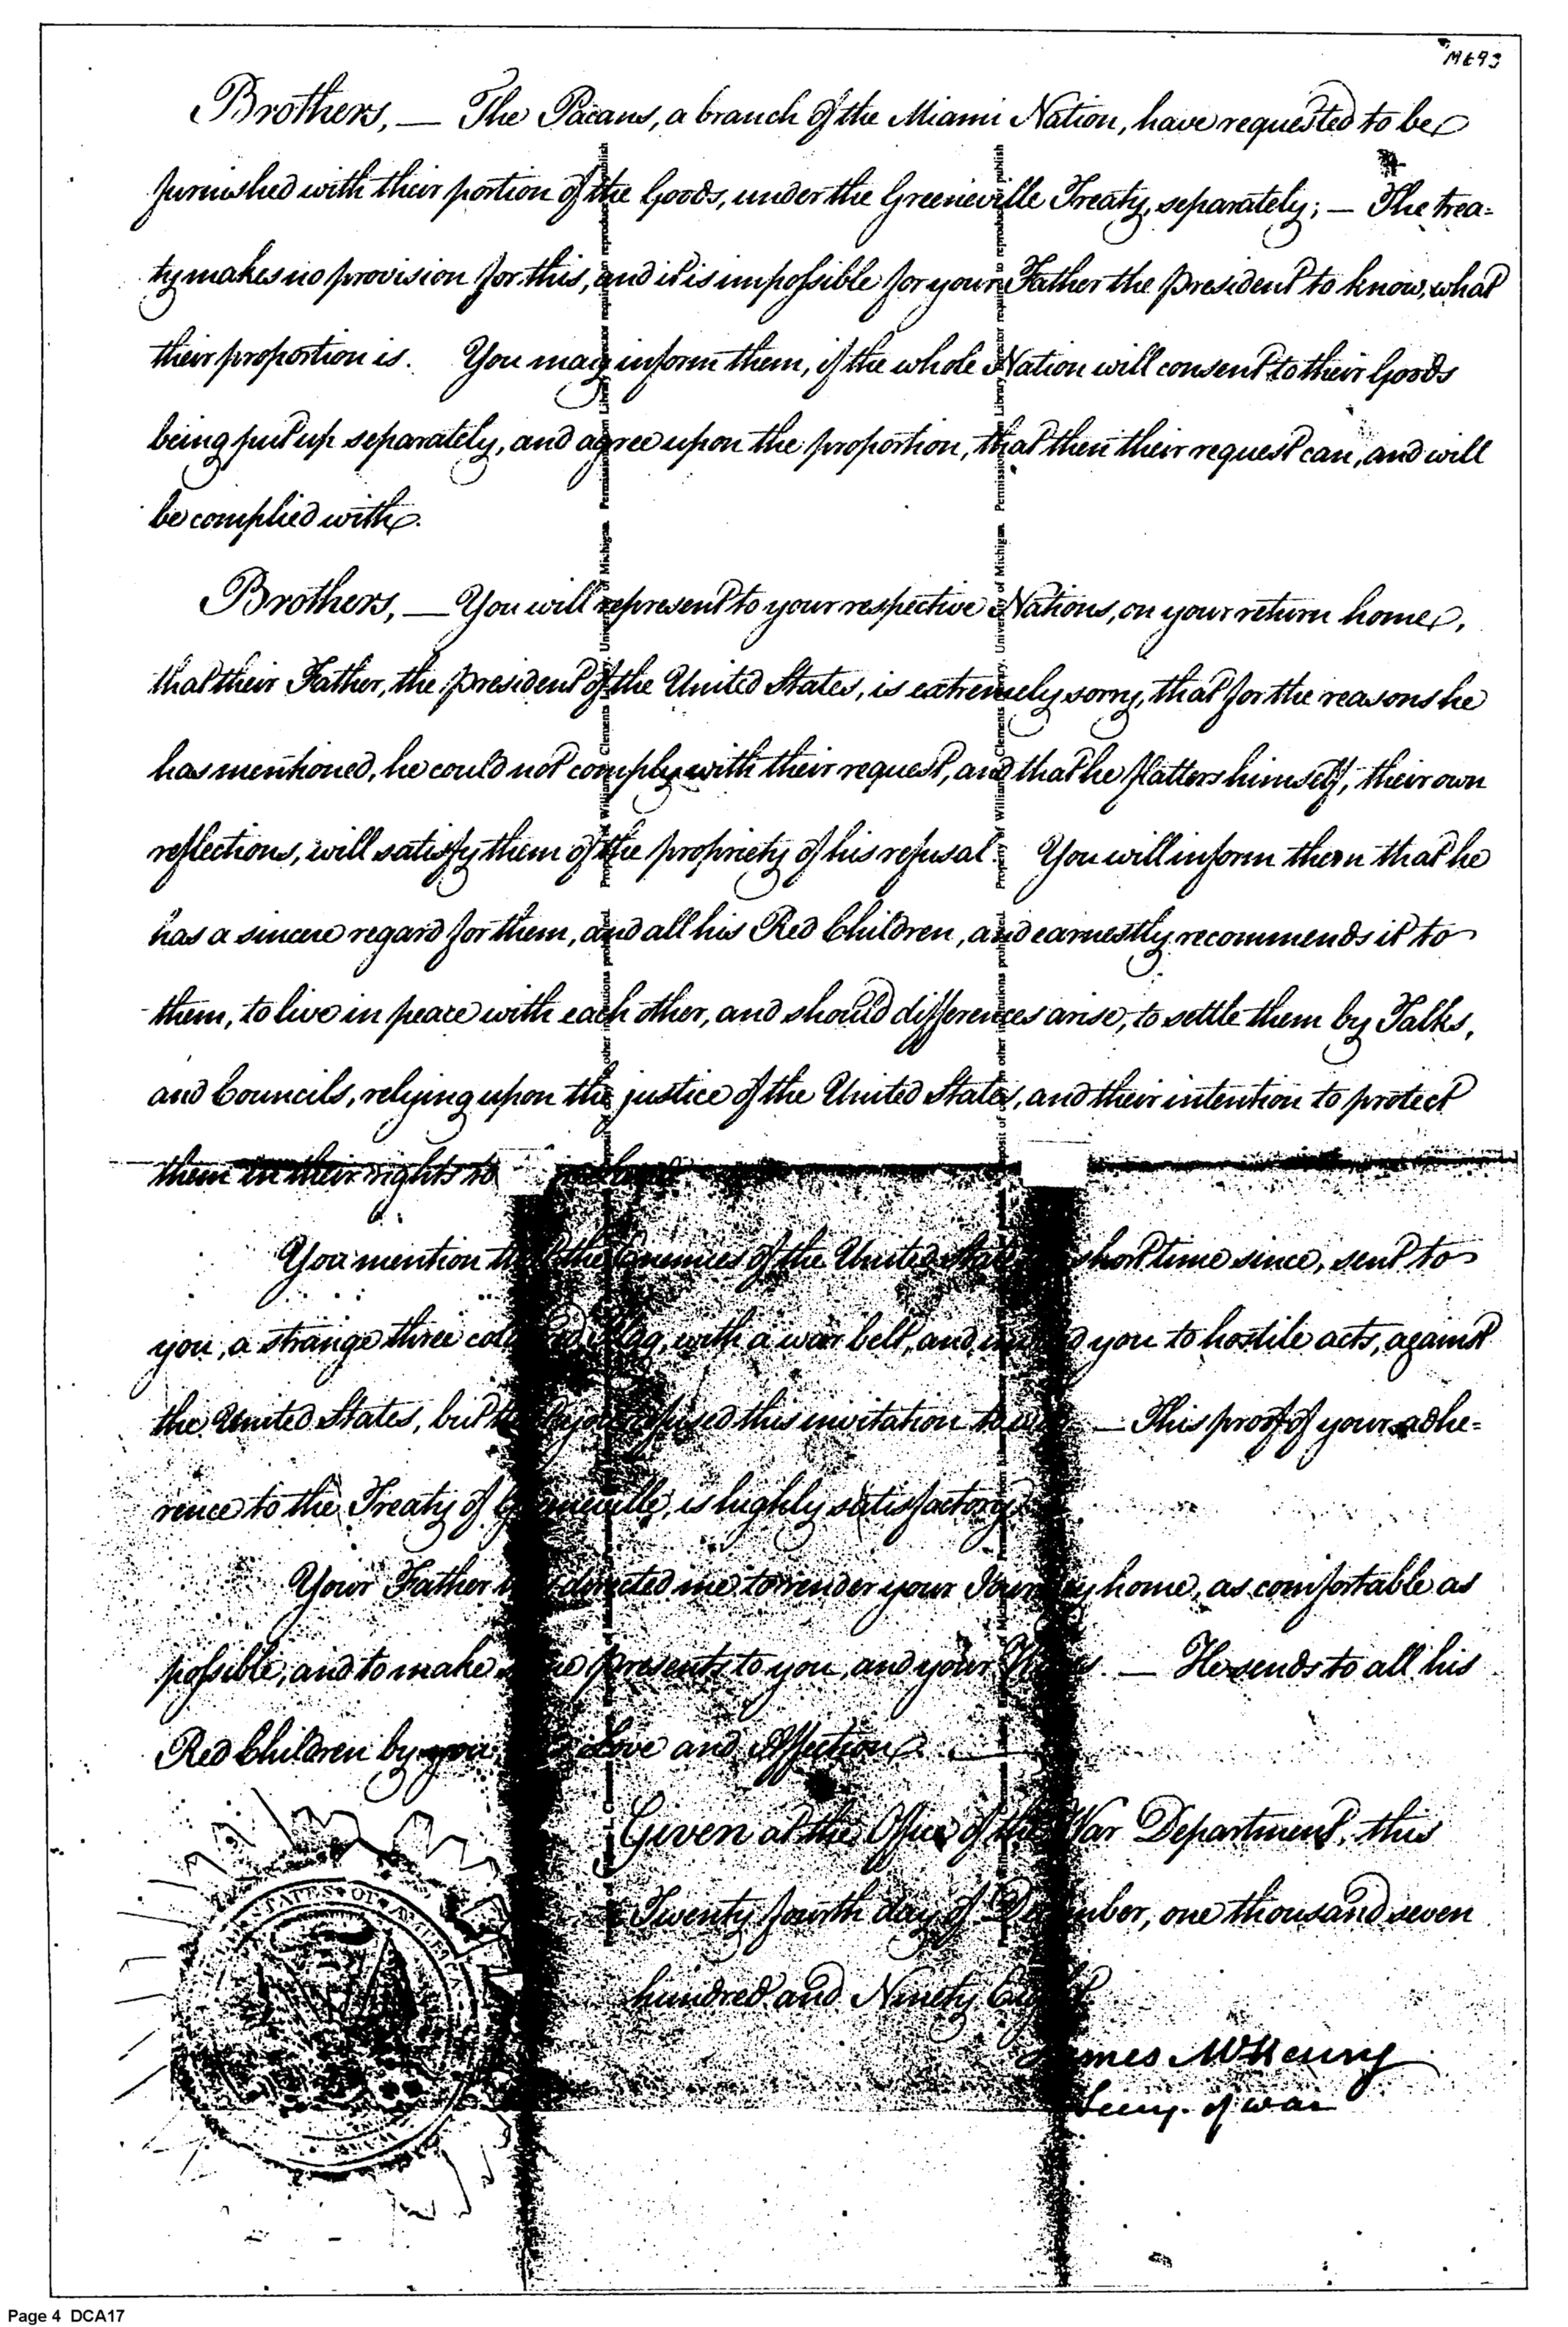 M693
Brothers, — The Pacans, a branch of the Miami Nation, have requested to be
furnished with their portion of the Goods, under the Greeneville Treaty, separately; — The trea=
ty makes no provision for this, and it is impossible for your Father the president to know, what
their proportion is. You may inform them, if the whole Nation will consent to their Goods
being put up separately, and agree upon the proportion, that then their request can, and will
be complied with.
Brothers, — You will represent to your respective Nations, on your return home,
that their Father, the president of the United States, is extremely sorry, that for the reasons he
has mentioned, he could not comply with their request, and that he flatters himself, their own
reflections, will satisfy them of the propriety of his refusal. You will inform them that he
has a sincere regard for them, and all his Red Children, and earnestly recommends it to
them, to live in peace with each other, and should differences arise, to settle them by Talks,
and Councils, relying upon the justice of the United States, and their intention to protect
them in their rights to
You mention the Enemies of the United short time since, sent to
you, a strange three Flag, with a war belt, and you to hostile acts, against
the United States, but refused this invitation to — This proof of your adhe=
rence to the Treaty of Greeneville, is highly satisfactory.
Your Father directed me to render your Journey home, as comfortable as
possible, and to make some presents to you, and your — He sends to all his
Red Children by you, Love and Affection. —
Given at the Office of the War Department, this
Twenty fourth day of December, one thousand seven
hundred and Ninety Eight
James McHenry
Secry. of war
STATES OF AMERICA
WAR
Property of William L. Clements Library, University of Michigan. Permission Library Director required to reproduce or publish
Page 4 DCA17